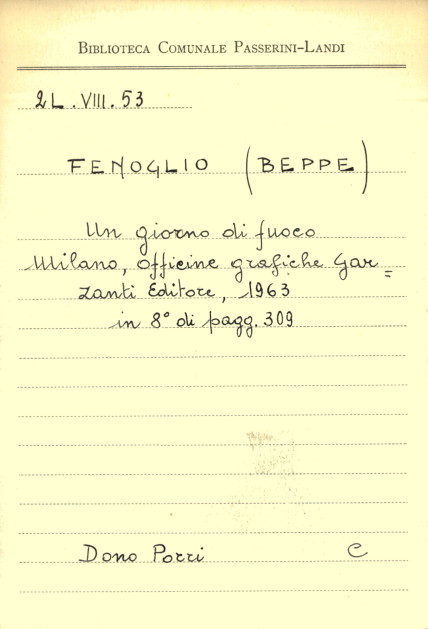 BIBLIOTECA COMUNALE PASSERINI-LANDI
2L.VIII.53
FENOGLIO (BEPPE)
Un giorno di fuoco
Milano, Officine grafiche Gar=
zanti Editore, 1963
in 8° di pagg. 309
Dono Porri C